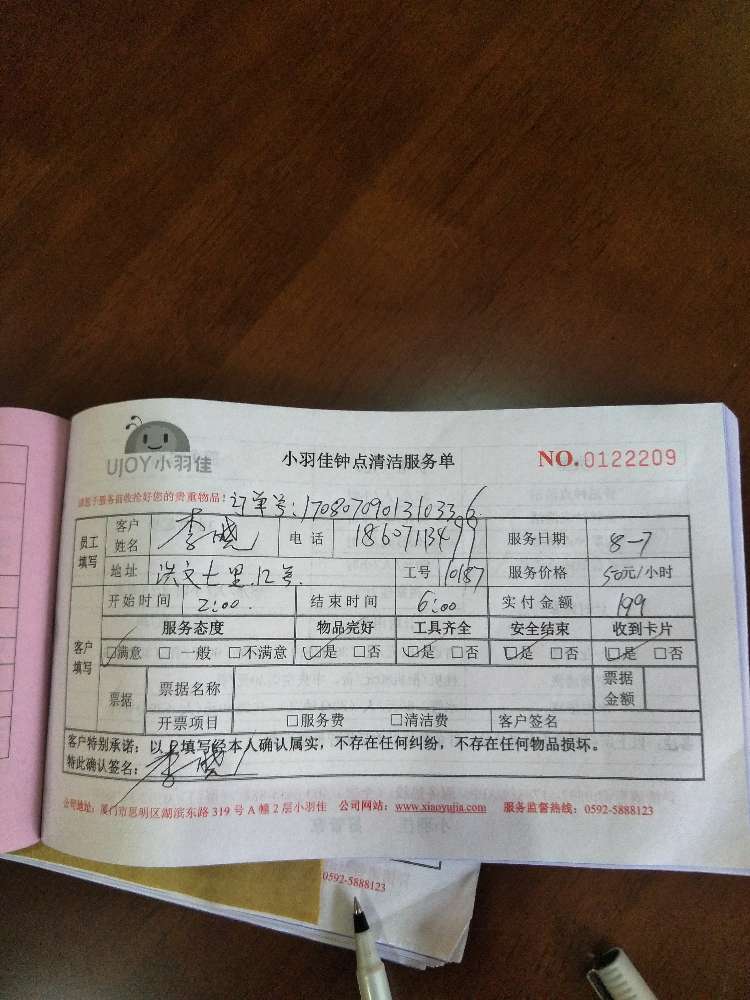 UJOY小羽佳
小羽佳钟点清洁服务单
NO.0122209
请您于服务前收捡好您的贵重物品！订单号：1708070901310336
员工填写 客户姓名 李晓 电话 18607113499 服务日期 8-7
地址 洪文七里.12号 工号 10187 服务价格 50元/小时
开始时间 2:00. 结束时间 6:00 实付金额 199
客户填写 服务态度 物品完好 工具齐全 安全结束 收到卡片
□满意 □一般 □不满意 □是 □否 □是 □否 □是 □否 □是 □否
票据 票据名称 票据金额
开票项目 □服务费 □清洁费 客户签名
客户特别承诺：以上填写经本人确认属实，不存在任何纠纷，不存在任何物品损坏。
特此确认签名：李晓
公司地址：厦门市思明区湖滨东路 319 号 A 幢 2 层小羽佳 公司网站：www.xiaoyujia.com 服务监督热线：0592-5888123
0592-5888123